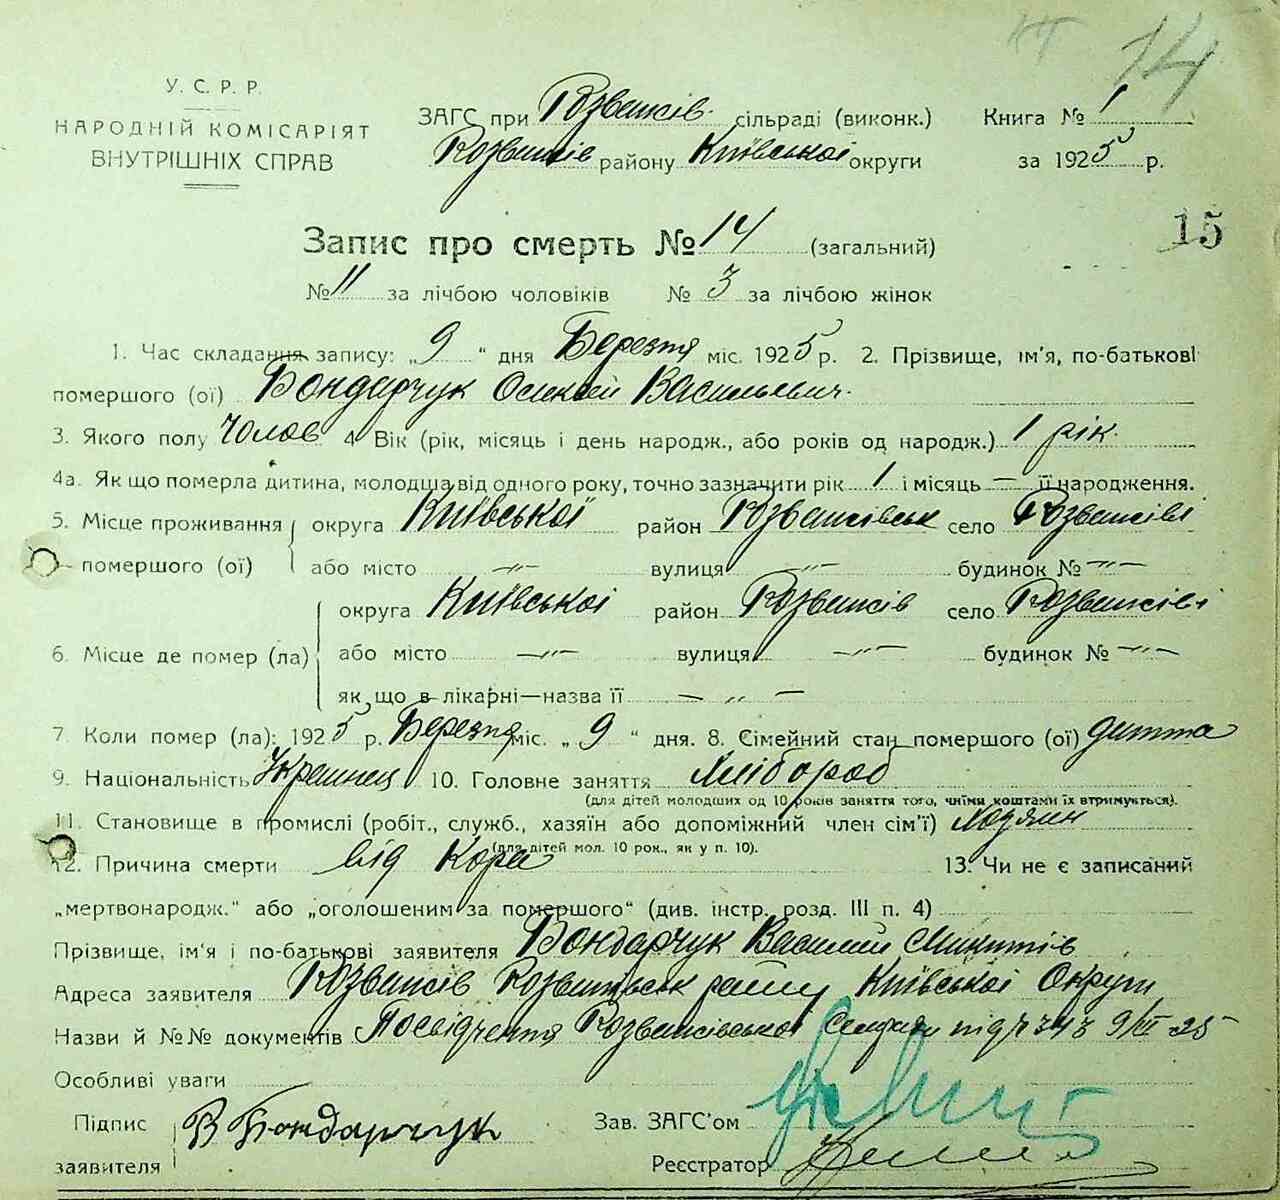 14
У. С. Р. Р.
НАРОДНІЙ КОМІСАРІЯТ
ВНУТРІШНІХ СПРАВ
ЗАГС при Розважів сільраді (виконк.) Книга № 1
Розважів району Київської округи за 1925 р.
15
Запис про смерть № 14 (загальний)
№ 11 за лічбою чоловіків № 3 за лічбою жінок
1. Час складання запису: „9“ дня Березня міс. 1925 р. 2. Прізвище, ім'я, по-батькові
помершого (ої) Бондарчук Василь­евич
3. Якого полу Чолов 4. Вік (рік, місяць і день народж., або років од народж.) 1 рік
4а. Як що померла дитина, молодша від одного року, точно зазначити рік 1 і місяць — її народження.
5. Місце проживання округа Київської район Розважівськ село Розважів
помершого (ої) або місто —"— вулиця —"— будинок № —"—
округа Київської район Розважів село Розважів
6. Місце де помер (ла) або місто —"— вулиця —"— будинок № —"—
як що в лікарні—назва її — " —
7. Коли помер (ла): 1925 р. Березня міс. „9“ дня. 8. Сімейний стан помершого (ої) дитта
9. Національність Украинец 10. Головне заняття Хлібороб
(для дітей молодших од 10 років заняття того, чиїми коштами їх втримується).
11. Становище в промислі (робіт., служб., хазяїн або допоміжний член сім'ї) Хозяин
(для дітей мол. 10 рок., як у п. 10).
12. Причина смерти від Кора 13. Чи не є записаний
„мертвонародж.“ або „оголошеним за помершого“ (див. інстр. розд. III п. 4)
Прізвище, ім'я і по-батькові заявителя Бондарчук Василий
Адреса заявителя Розважів Розважівськ району Київської Округи
Назви й №№ документів Посвідчення Розважівської 9/III 25
Особливі уваги
Підпис
заявителя В Бондарчук
Зав. ЗАГС'ом
Реєстратор